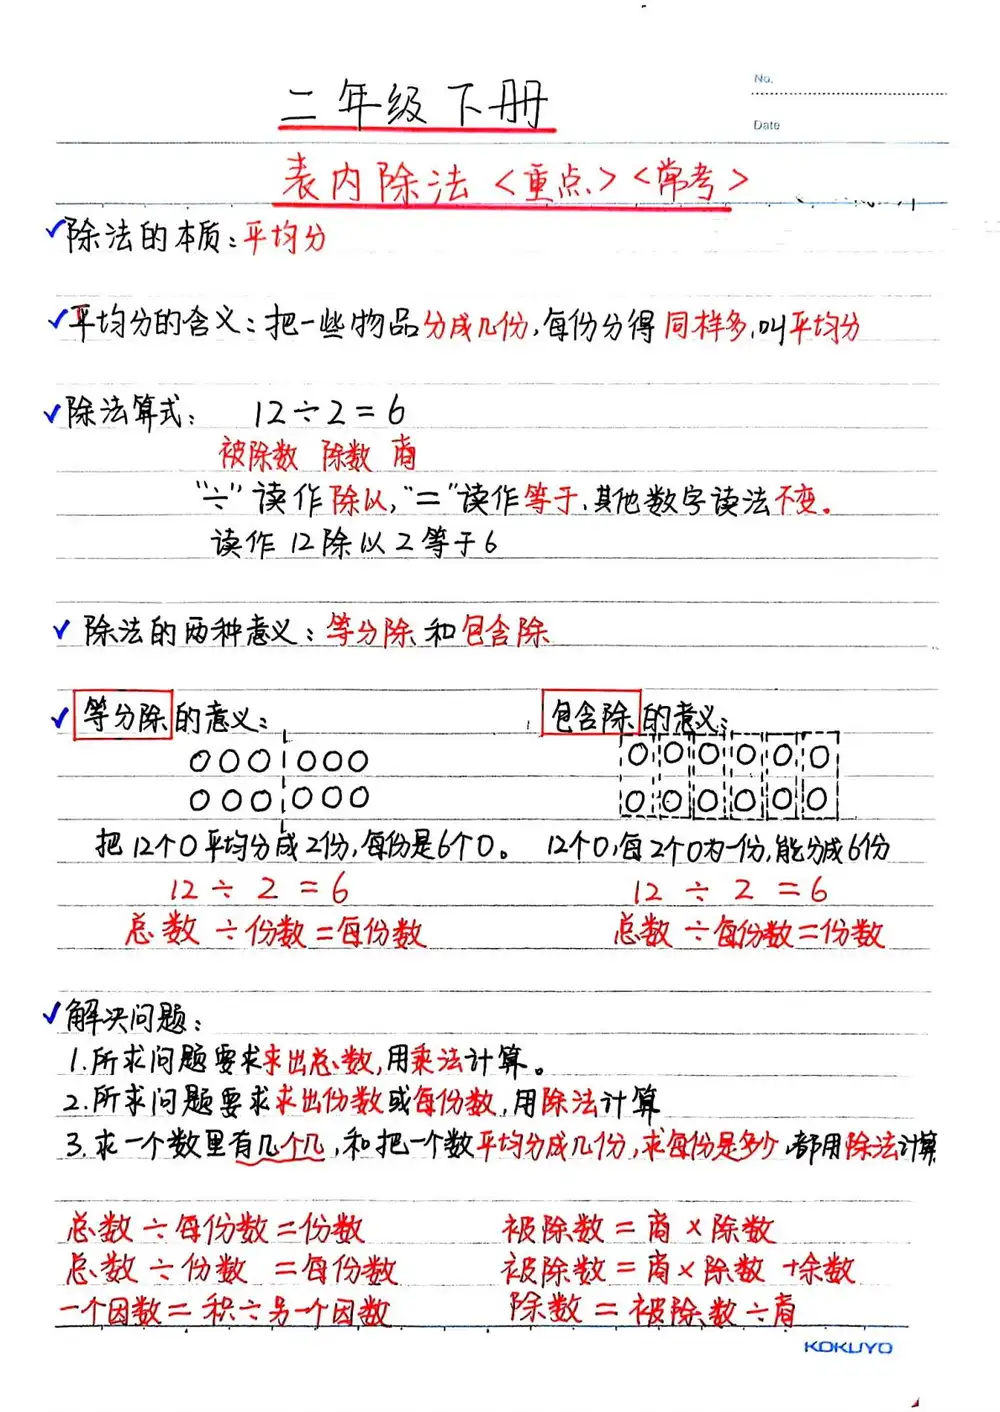 No.
二年级下册
Date
表内除法<重点><常考>
✓除法的本质:平均分
✓平均分的含义:把一些物品分成几份,每份分得同样多,叫平均分
✓除法算式: 12÷2=6
被除数 除数 商
"÷"读作除以,"="读作等于,其他数字读法不变。
读作12除以2等于6
✓除法的两种意义:等分除和包含除
✓等分除的意义: 包含除的意义:
把12个O平均分成2份,每份是6个O。 12个O,每2个O为一份,能分成6份
12÷2=6 12÷2=6
总数÷份数=每份数 总数÷每份数=份数
✓解决问题:
1.所求问题要求求出总数,用乘法计算。
2.所求问题要求求出份数或每份数,用除法计算
3.求一个数里有几个几,和把一个数平均分成几份,求每份是多少,都用除法计算
总数÷每份数=份数 被除数=商×除数
总数÷份数=每份数 被除数=商×除数+余数
一个因数=积÷另一个因数 除数=被除数÷商
KOKUYO